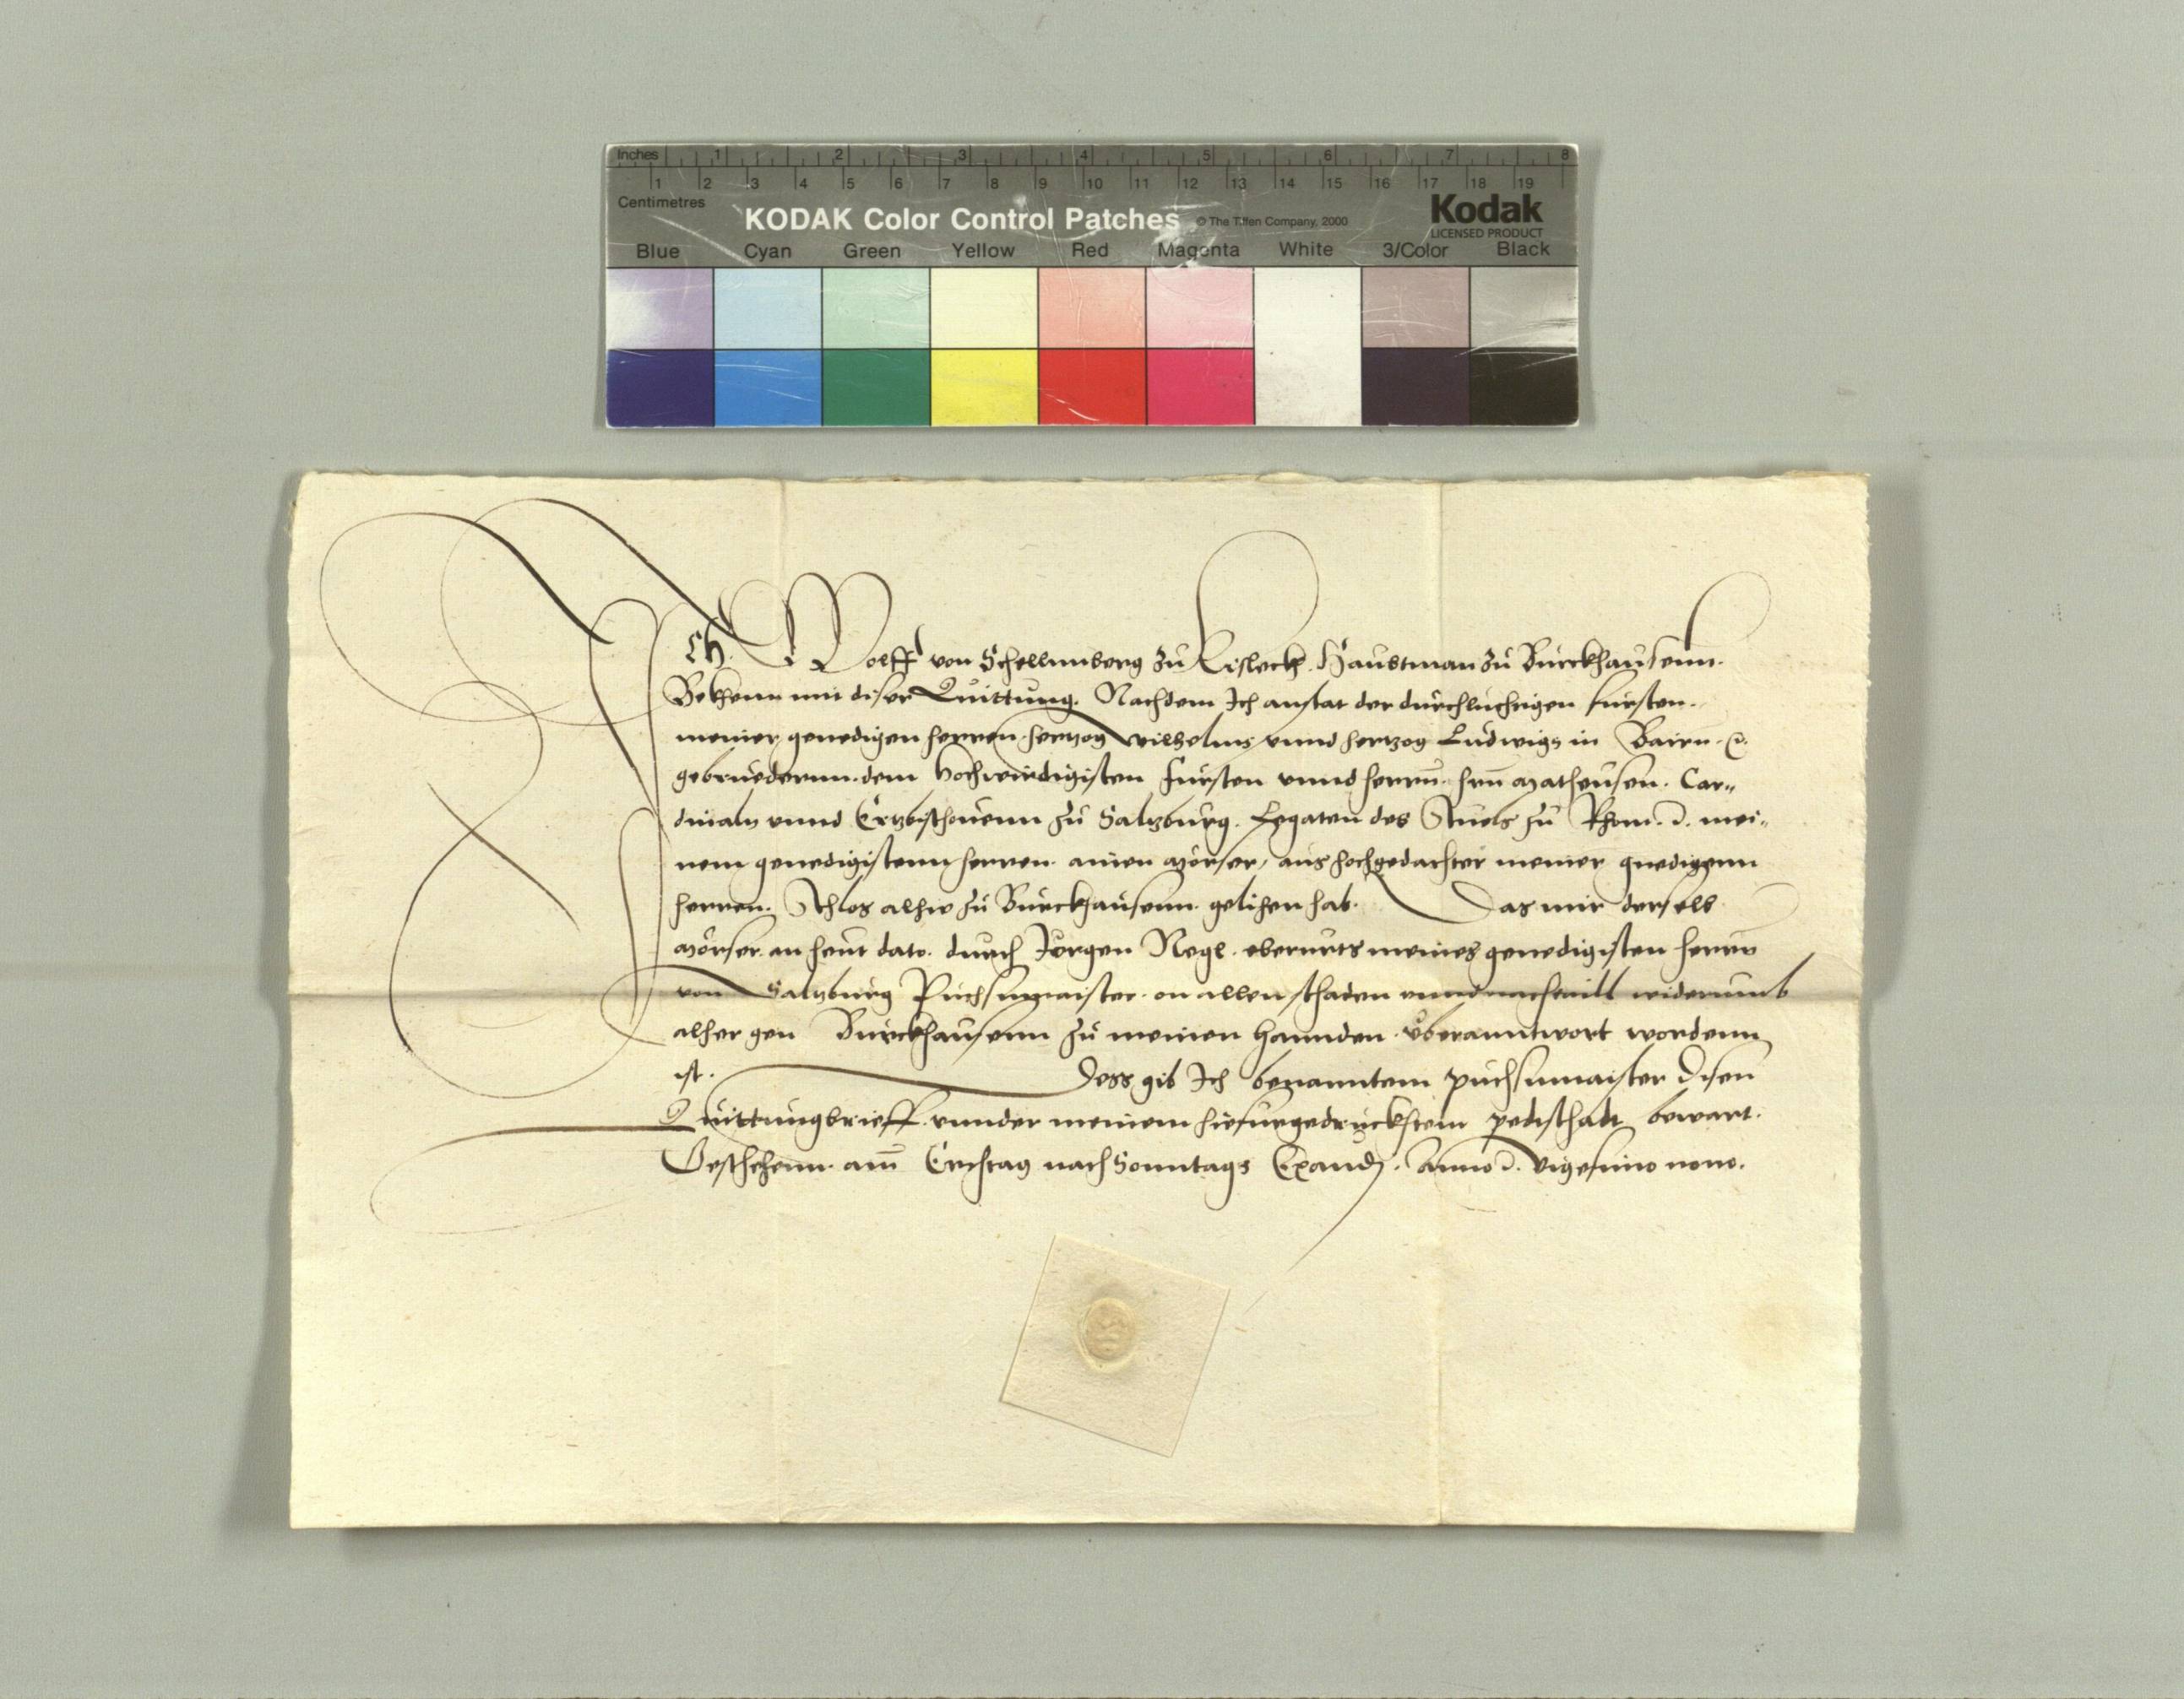 Inches 1 2 3 4 5 6 7 8
1 2 3 4 5 6 7 8 9 10 11 12 13 14 15 16 17 18 19
Centimetres
KODAK Color Control Patches © The Tiffen Company, 2000 Kodak
LICENSED PRODUCT
Blue Cyan Green Yellow Red Magenta White 3/Color Black
Ich Wolff von Schellennberg zu Kisleck. Haubtman zu Burckhausenn.
Bekenn mit diser Quittung. Nachdem Ich anstat der durchluchtigen fursten.
meiner genedigen herren hertzog Wilhelms unnd hertzog Ludwigs in Bairn.
gebruedernn. dem hochwirdigisten fursten unnd herrn. hrn Matheusen. Car„
dinaln unnd Ertzbischouenn zu Saltzburg. Legaten des Stuels zu Rhom. mei„
nem genedigistenn herren. ainen Mörser, aus hochgedachter meiner gnedigenn
herren. Schlos alhie zu Burckhausenn. gelihen hab. Das mir derselb
Mörser. an heut dato. durch Jörgen Regl. meines genedigisten herrn
von Saltzburg Puchsnmaister. on allen schaden unnd widerumb
alher gen Burckhausenn zu meinen hannden. uberanntwort wordenn
ist. Dess gib Ich benanntem puchsnmaister disen
Quittungbrieff. unnder meinem hiefurgedrucktem pedtschadt bewart.
Geschehenn. am Erichtag nach Sonntags Exaudj. Anno vigesimo nono.